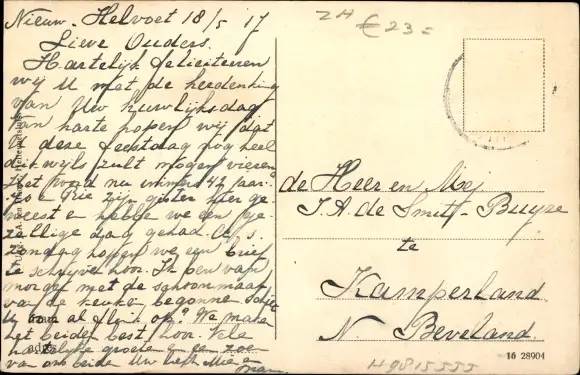 Nieuw-Helvoet 18/5 '17
Lieve Ouders.
Hartelijk feliciteeren
wij U met de herdenking
van Uw huwlijksdag
Van harte hopen wij dat
U deze feestdag nog heel
dikwijls zult mogen vieren
Het word nu immers 42 jaar.
zijn gister hier ge-
weest e hebbe we een ge-
zellige dag gehad.
zondag hopen we een brief
te schrijve hoor. Ik ben van
morgen met de schoonmaak
van de keuke begonne. Schiet
U al fluik op? We make
het beiden best hoor. Vele
hartelijke groeten e een zoen
van ons beide Uw
ZH € 23=
de Heer en Mej
J. A. de Smit-Buijze
te
Kamperland.
N. Beveland.
16 28904
H9815555